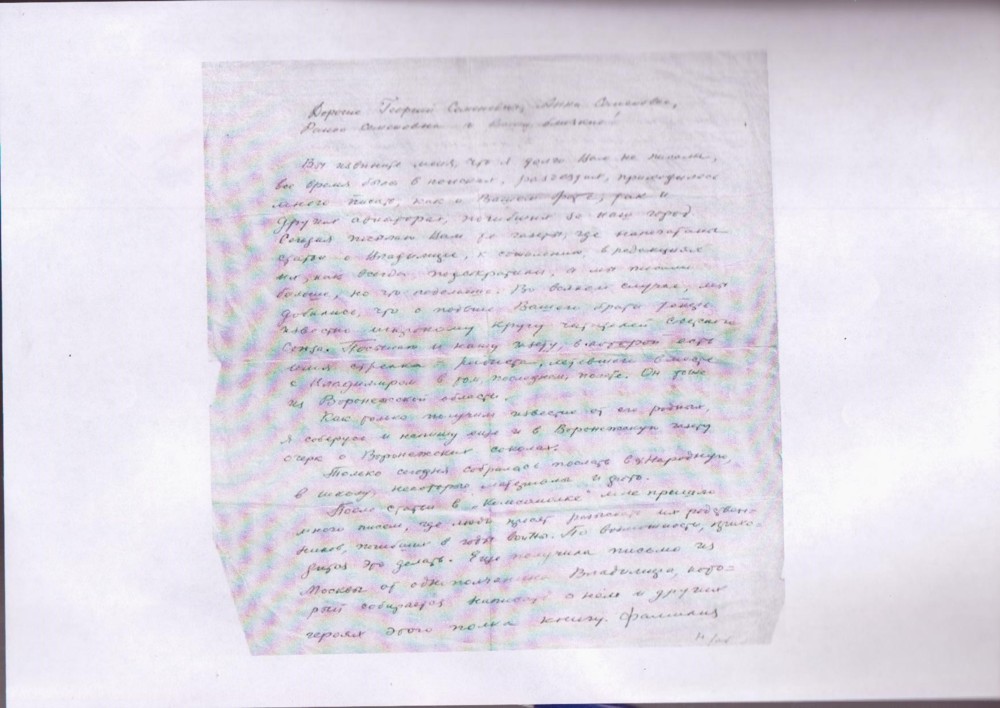 Дорогие Георгий Семенович, Анна Семеновна,
Раиса Семеновна и Ваши близкие!
Вы извините меня, что я долго Вам не писала,
все время была в поисках, разъездах, приходилось
много писать, как о Вашем брате, так и
других авиаторах, погибших за наш город.
Сегодня высылаю Вам газеты, где напечатаны
статьи о Владимире, к сожалению, в редакциях
их, как всегда, подсократили, а мы писали
больше, но что поделаешь. Во всяком случае, мы
добились, что о подвиге Вашего брата теперь
известно широкому кругу читателей Советского
Союза. Посылаем и нашу газету, в которой есть
имя стрелка-радиста, летевшего вместе
с Владимиром в том последнем полете. Он тоже
из Воронежской области.
Как только получим известие от его родных,
я соберусь и напишу еще и в Воронежскую газету
очерк о Воронежских соколах.
Только сегодня собралась послать в
в школу некоторые материалы и фото.
После статьи в „Комсомолке" мне пришло
много писем, где люди просят разыскать их родствен-
ников, погибших в годы войны. По возможности, прихо-
дится это делать. Еще получила письмо из
Москвы от однополчанина Владимира, кото-
рый собирается написать о нем и других
героях этого полка книгу. Фамилия